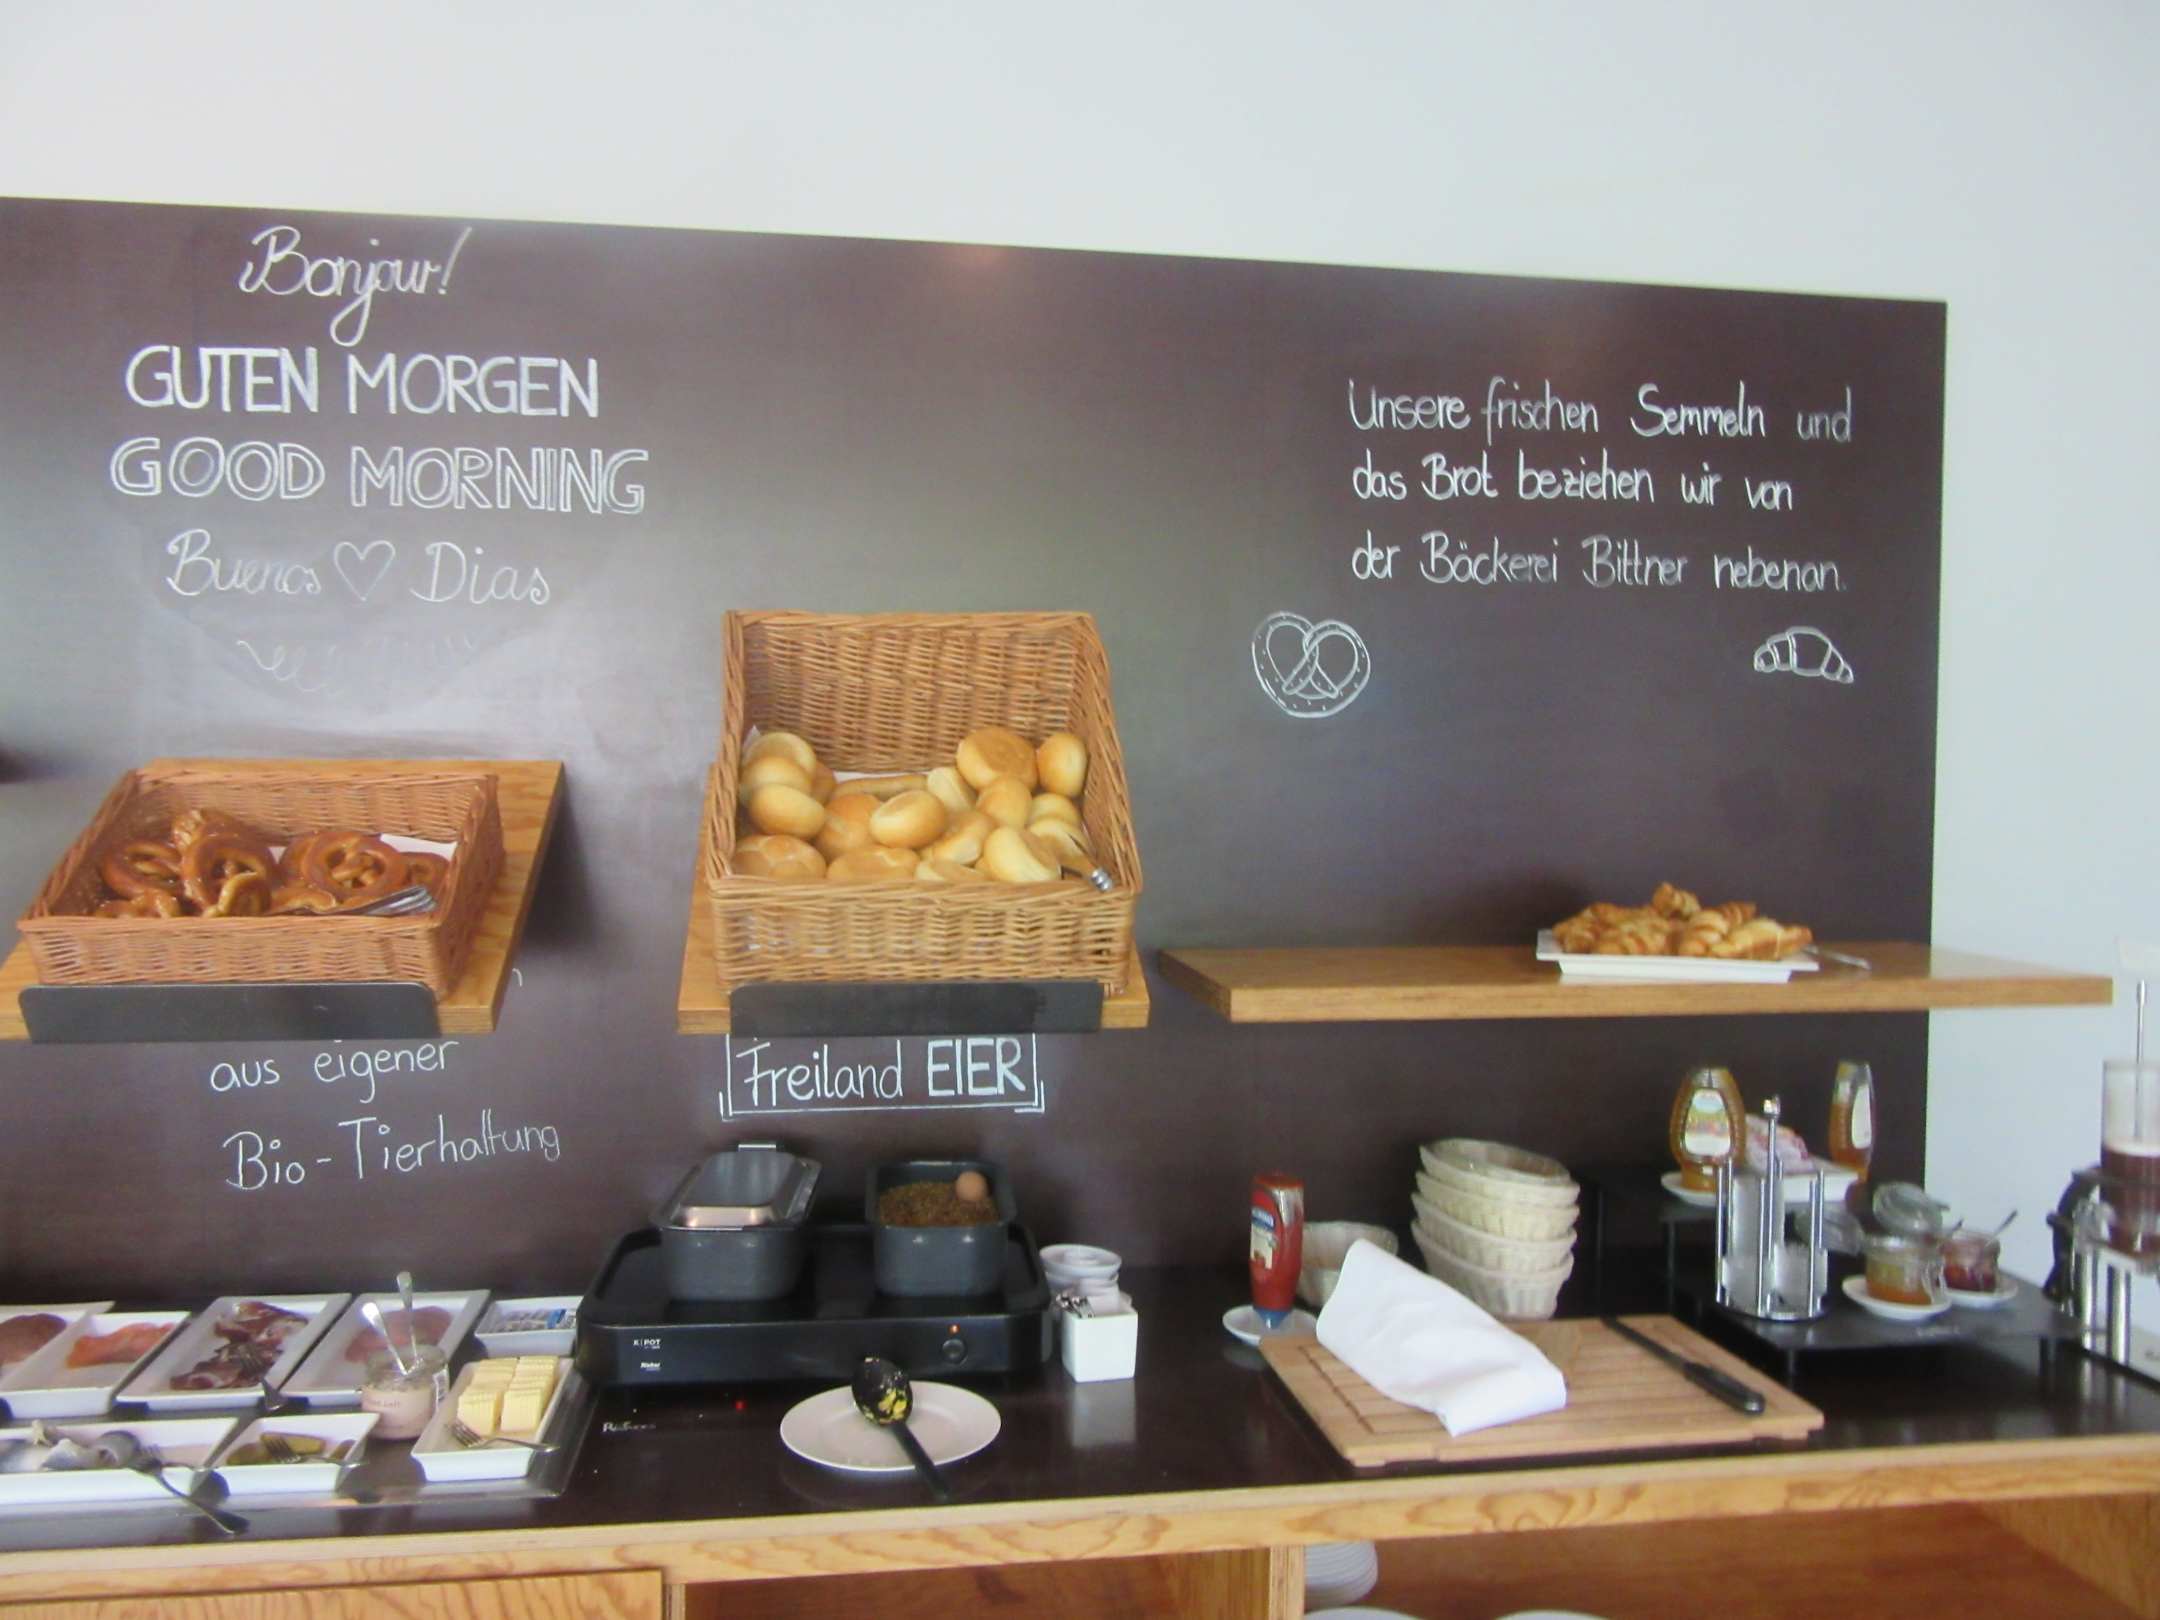 Bonjour!
GUTEN MORGEN
GOOD MORNING
Buenos Dias
Unsere frischen Semmeln und
das Brot beziehen wir von
der Bäckerei Bittner nebenan.
aus eigener
Bio-Tierhaltung
Freiland EIER
K|POT